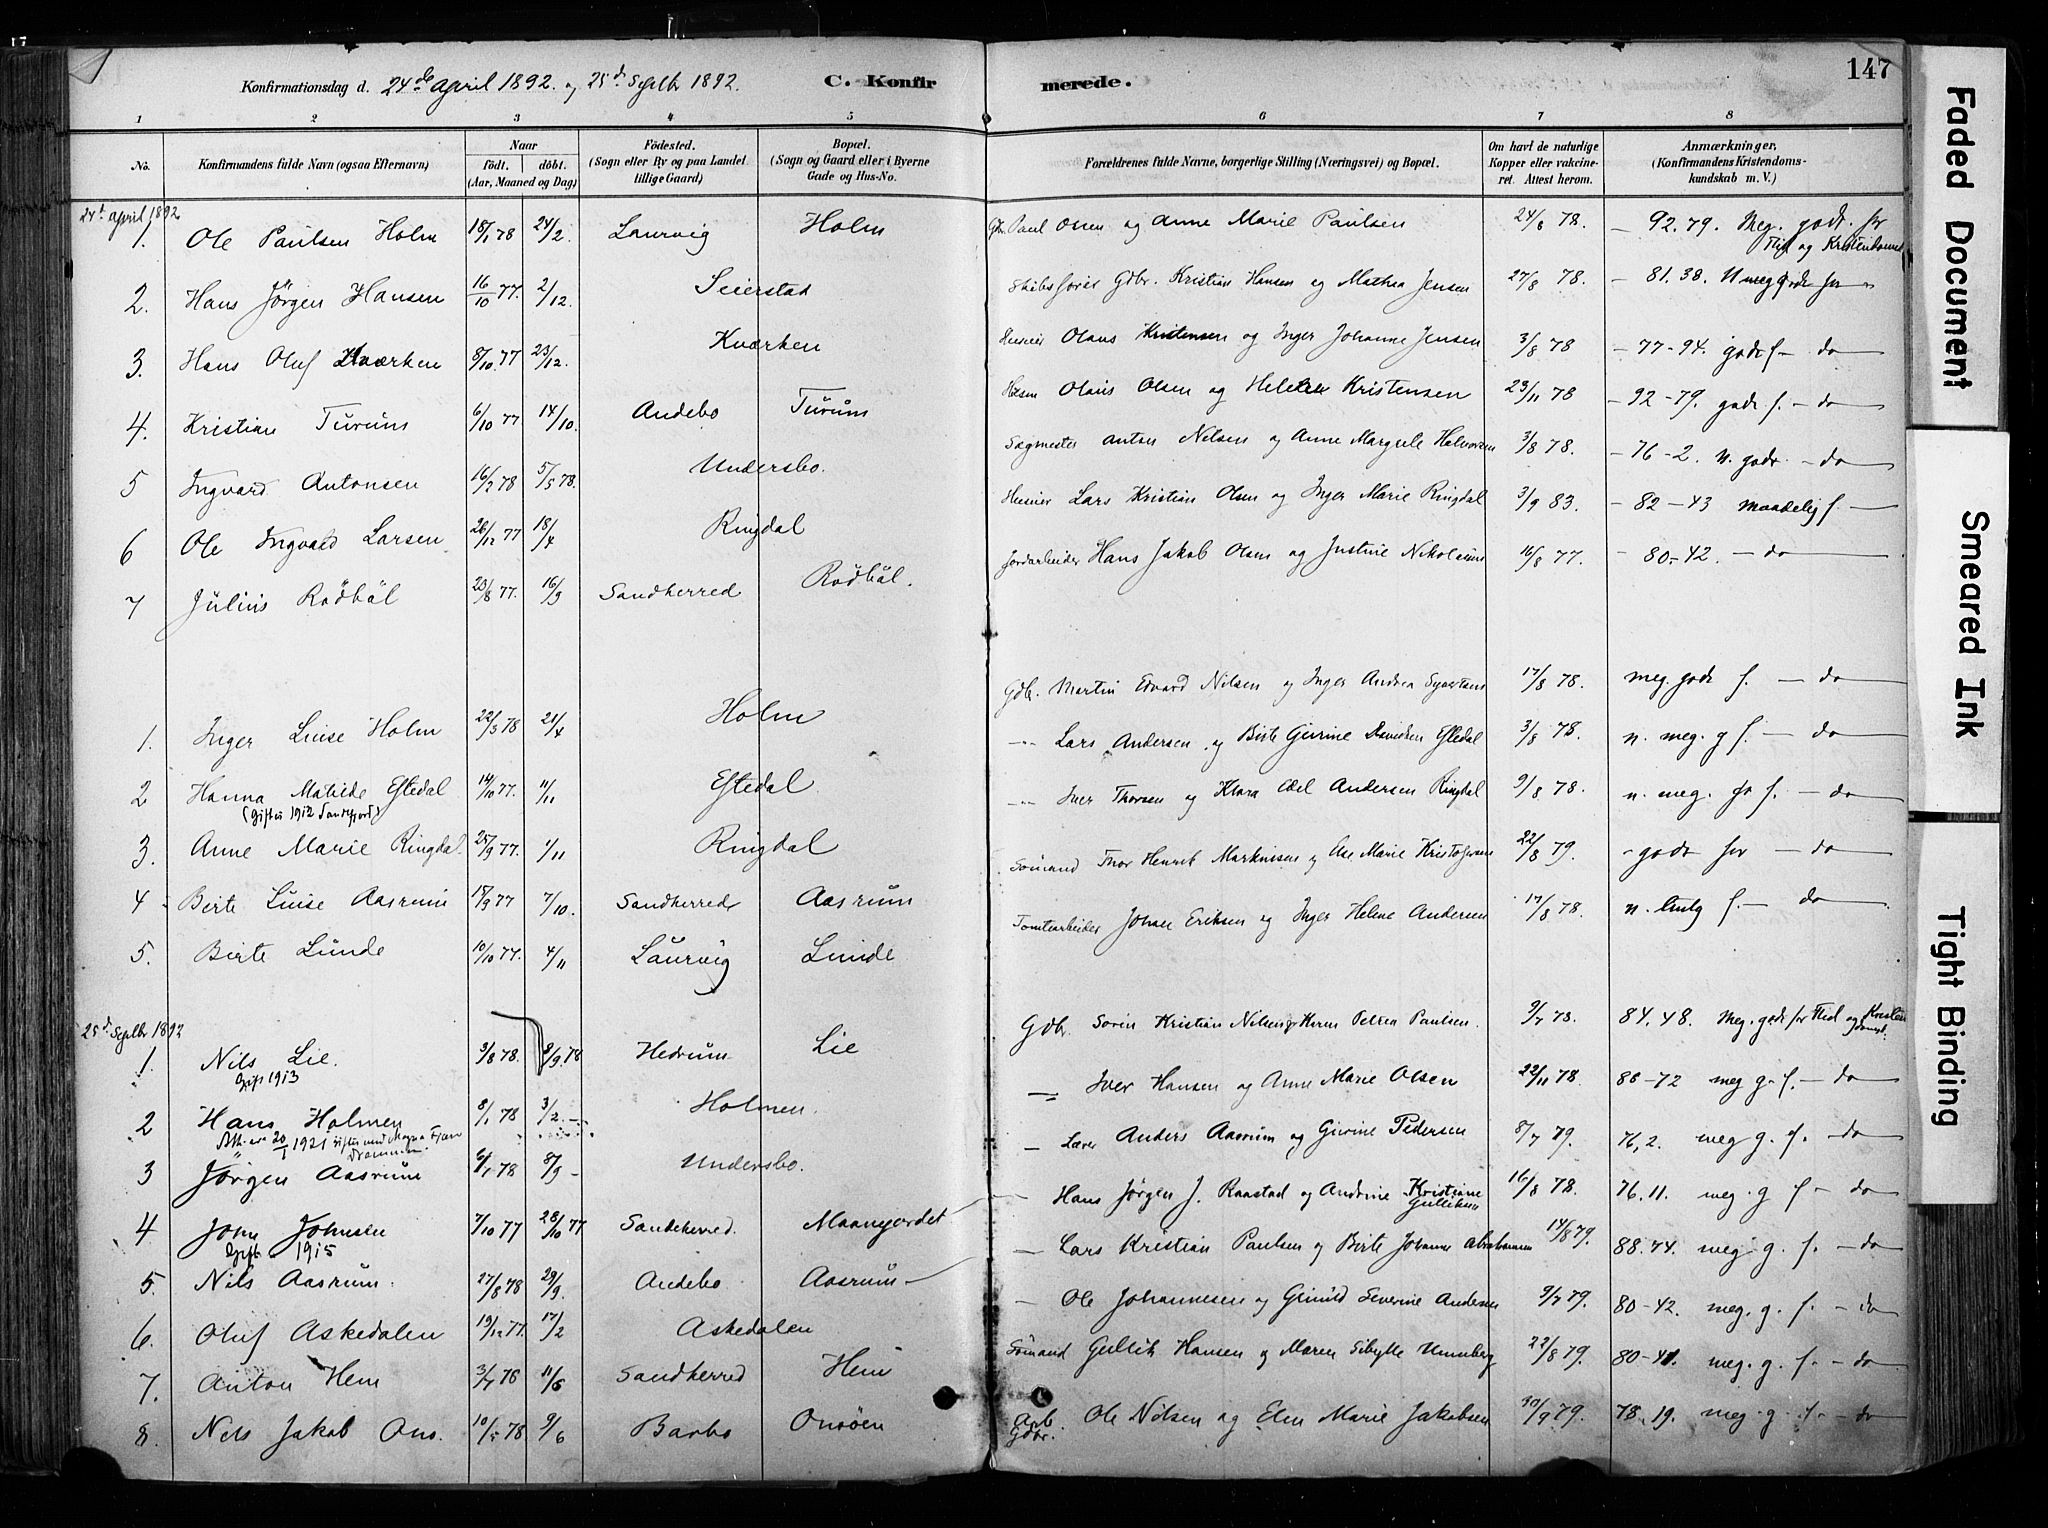 147
Konfirmationsdag d. 24de April 1892. og 25d. Septbr 1892. C. Konfirmerede.
1 2 3 4 5 6 7 8
No. Konfirmandens fulde Navn (ogsaa Efternavn) Naar født, døbt. (Aar, Maaned og Dag) Fødested. (Sogn eller By og paa Landet tillige Gaard) Bopæl. (Sogn og Gaard eller i Byerne Gade og Hus-No. Forældrenes fulde Navne, borgerlige Stilling (Næringsvei) og Bopæl. Om havt de naturlige Kopper eller vakcineret. Attest herom. Anmærkninger, (Konfirmandens Kristendomskundskab m. V.)
24d. April 1892
1. Ole Paulsen Holm 18/1 78 24/2. Laurvig Holm Paul Olsen og Anne Marie Paulsen 24/8 78. - 92.79. Meg. godt. for Flid og Kristendomsk
2. Hans Jörgen Hansen 16/10 77. 2/12. Seierstad Skibsfører Gdbr. Kristian Hansen og Mathea Jensen 27/8 78. - 81.38.
3. Hans Oluf Kværken 8/10. 77 23/12. Kværken Olaus Kristensen og Inger Johanne Jensen 3/8 78 - 77-94. godt f - do
4. Kristian Turum 6/10 77 14/10. Andebo Turum Olaus Olsen og Helene Kristensen 23/11 78 - 92-79. godt f. - do
5 Ingvard Antonsen 16/2 78 5/5 78. Undersbo. Sagmester Anton Nilsen og Anne Margrete Halvorsen 3/8 78. - 76-2. n. godt. - do
6 Ole Ingvald Larsen 26/12 77 18/4 Ringdal Lars Kristian Olsen og Inger Marie Ringdal 3/9 83. - 82-43 maadelig f. -
7 Julius Rödböl 23/8 77. 16/9 Sandherred Rödböl. Jordarbeider Hans Jakob Olsen og Justine Nikolaisen 16/8 77. - 80-42. - do
1. Inger Luise Holm 22/3 78 21/4 Holm Gdb. Martin Edvard Nilsen og Inger Andrea Syvertsen 17/8 78. meg. godt f. - do
2 Hanna Matilde Eftedal 14/10 77. 11/11 Eftedal. Lars Andersen og Birte Gurine Davidsen Eftedal 3/8 78. n. meg. g f. - do
(Giftes 1912 Sandefjord)
3. Anne Marie Ringdal. 25/9 77. 1/11 Ringdal Iver Thorsen og Klara Edel Andersen Ringdal 9/8 78. n. meg. go f. - do
4 Birte Luise Aasrum 18/9 77 7/10. Sandherred Aasrum Sömand Thor Henrik Markusen og Else Marie Kristofersen 22/8 79. - godt for - do
5. Birte Lunde 10/10 77. 4/11 Laurvig Lunde Tomtearbeider Johan Eriksen og Inger Helene Andersen 17/8 78. f. - do
25d. Septbr 1892
1. Nils Lie. 3/8 78. 8/9. 78 Hedrum Lie Gdbr. Sören Kristian Nilsen og Maren Petrea Paulsen. 9/7 78. 84.48. Meg. godt for Flid og Kristendomsk.
Gift 1913
2 Hans Holmen 8/1 78 3/2. - Holmen. - Iver Hansen og Anne Marie Olsen 22/11 78. 86-72 meg g. f. - do
20/1 1921 giftes med Magna
Drammen
3 Jörgen Aasrum 6/1 78 8/9 - Undersbo. - Lærer Anders Aasrum og Gurine Pedersen 8/7 79. 76,2. meg g. f. - do
4 John Johnsen 7/10 77 28/10 77 Sandeherred. Maanejordet - Hans Jörgen J. Raastad og Andrine Kristiane Gulliksen 16/8 78. 76.11. meg. g f - do
Gift 1915
5. Nils Aasrum. 27/8 78 29/9. Andebo Aasrum - - Lars Kristian Paulsen og Birte Johanne Abrahamsen 14/8 79. 88.44. meg. g. f. - do
6. Oluf Askedalen 19/12 77. 17/2 Askedalen - Ole Johannesen og Gunild Severine Andersen 9/7 79. 80-42. meg. g. f. - do
7. Anton Hem 3/7 78 11/8 Sandherred Hem Sömand Gullik Hansen og Maren Sibylle Unneberg 22/8 79. 80-41. meg. g. f. - do
8. Nils Jakob 10/5 78 9/6 Barbo Onsöen Arb. Gdbr. Ole Nilsen og Elen Marie Jakobsen 30/9 79. 78.19. meg. g. f. - do
Faded Document
Smeared Ink
Tight Binding